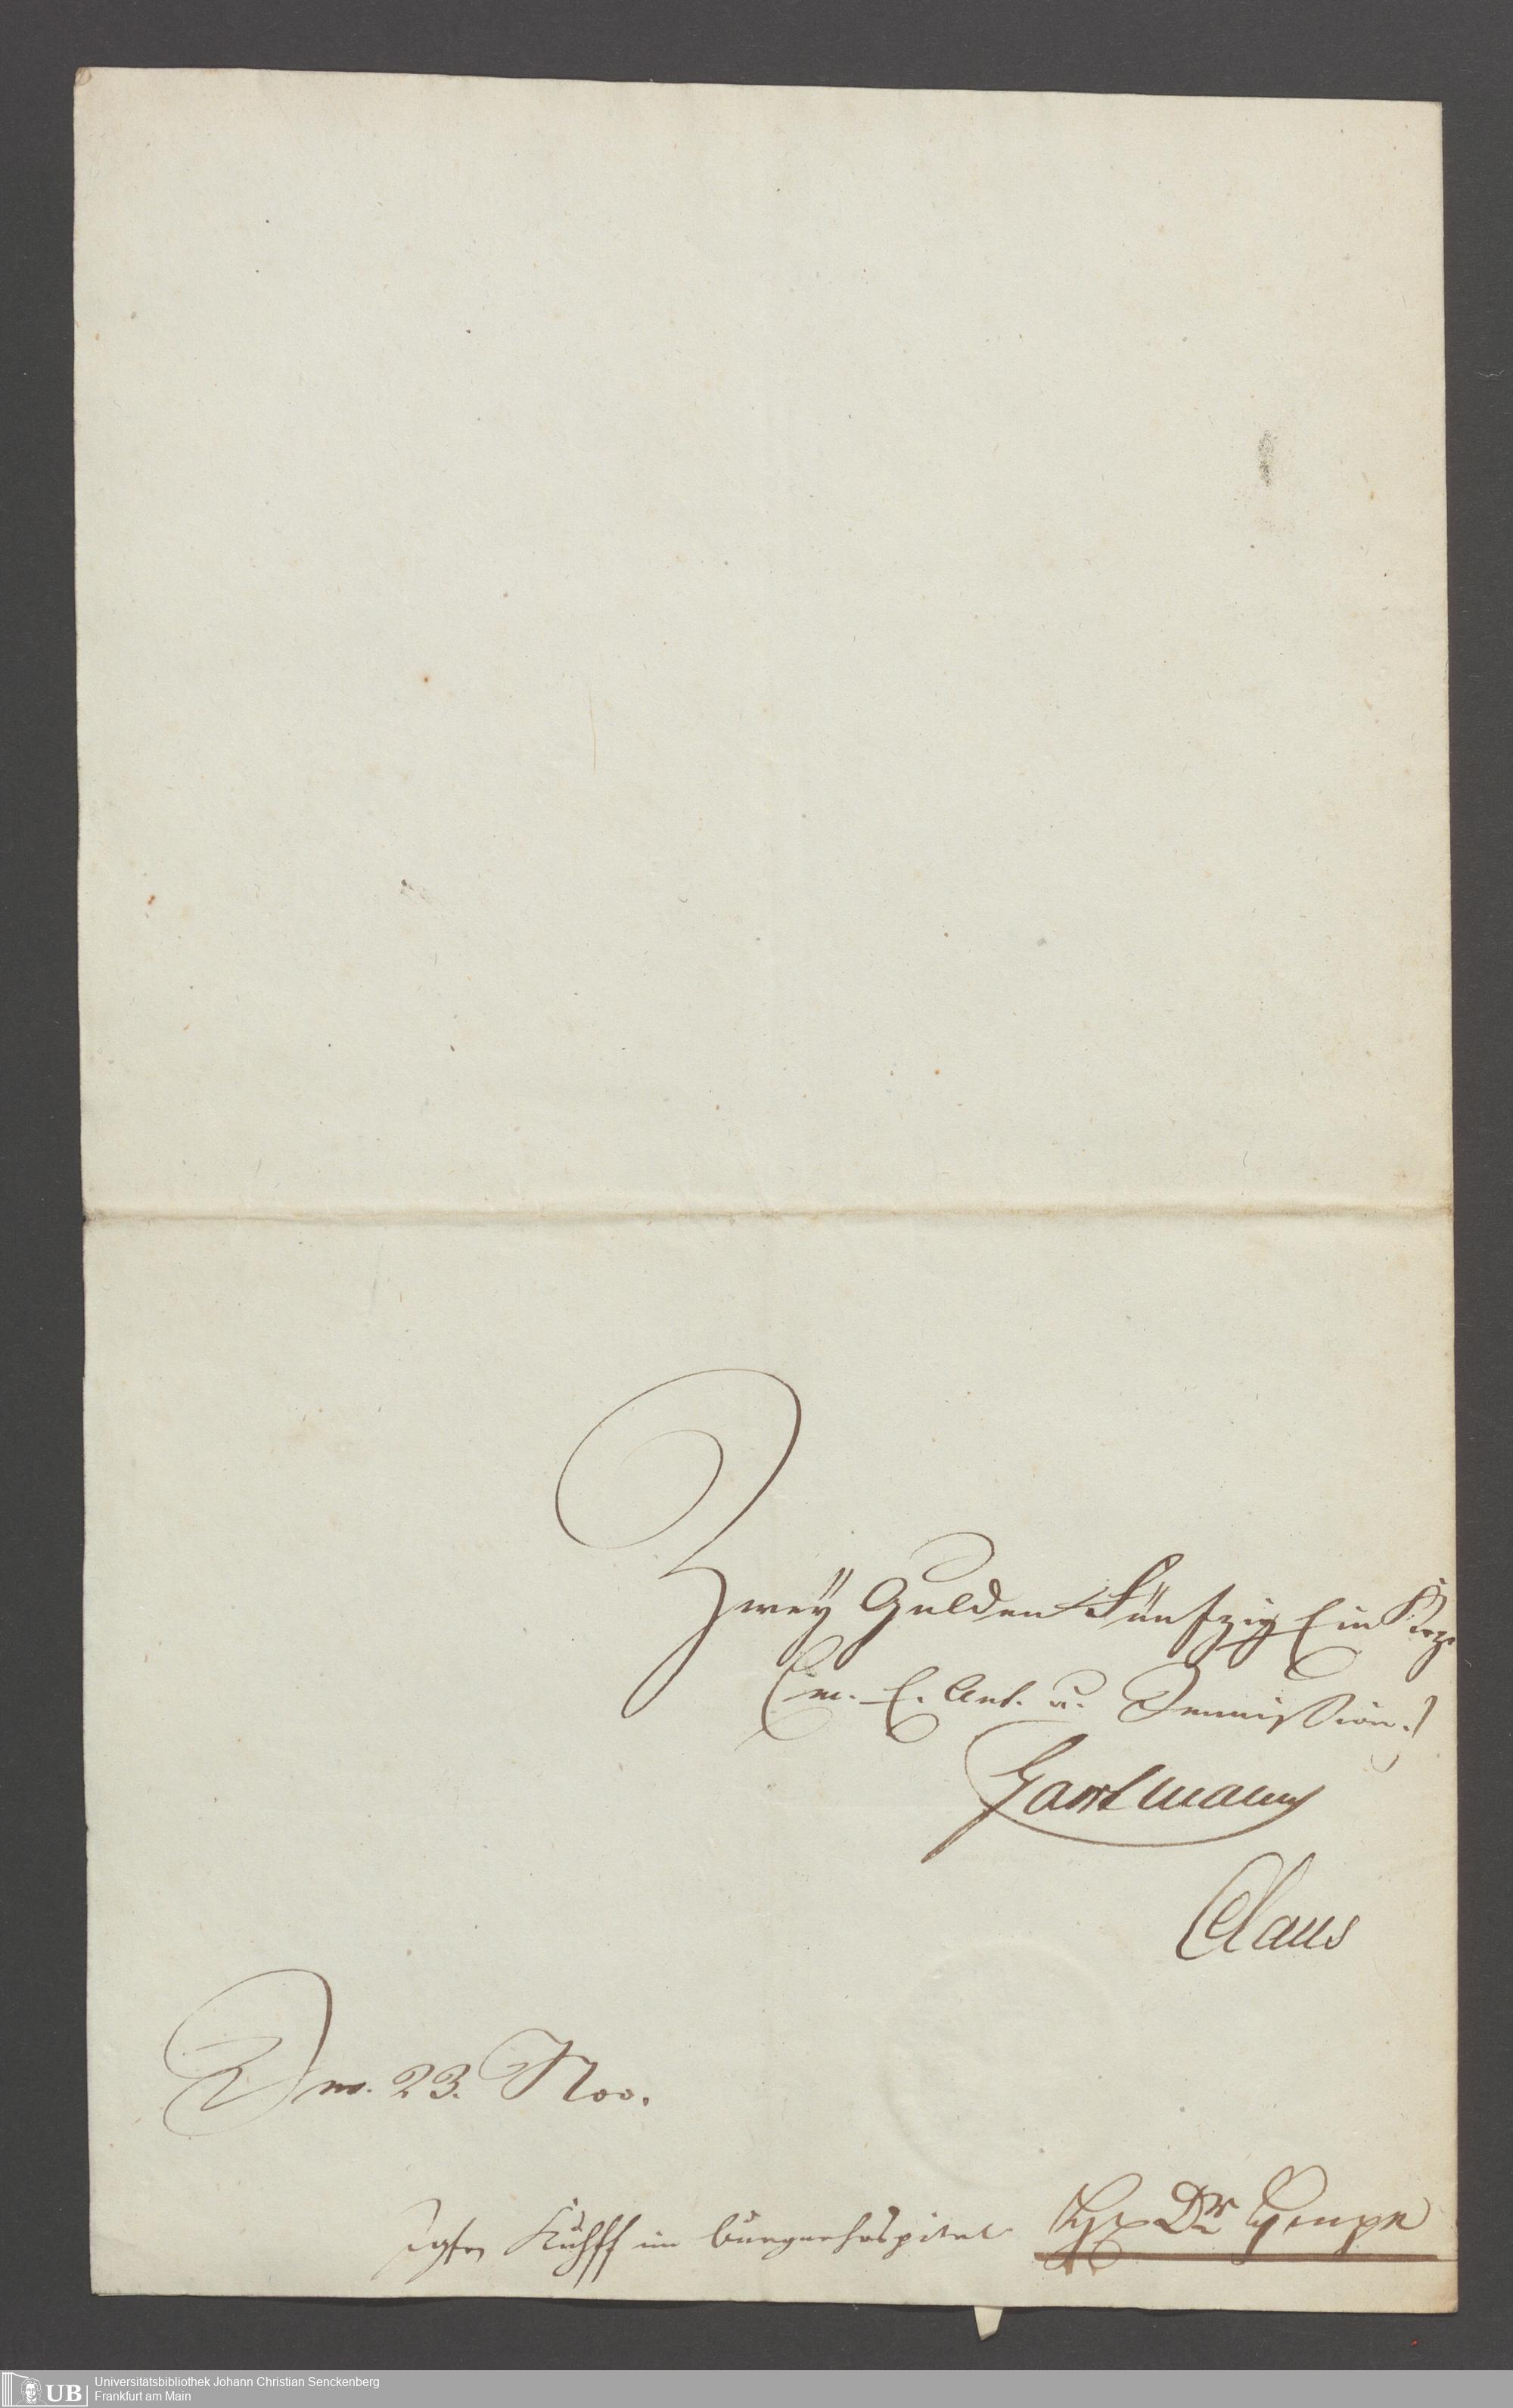 Zwey Gulden Fünfzig Ein Krz.
(m. E. Ant. u. Dennission.)
Hartmann
Claus
Dm. 23. Nov.
Kuhfff im Bürgerhospital Hr Dr
UB Universitätsbibliothek Johann Christian Senckenberg
Frankfurt am Main